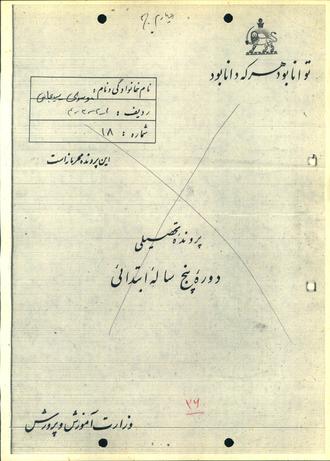 توانا بود هر که دانا بود
نام خانوادگی و نام :
ردیف :
شماره : ۱۸
این پرونده محرمانه است
پروندهٔ تحصیلی
دورهٔ پنج سالهٔ ابتدائی
۲۶
وزارت آموزش و پرورش